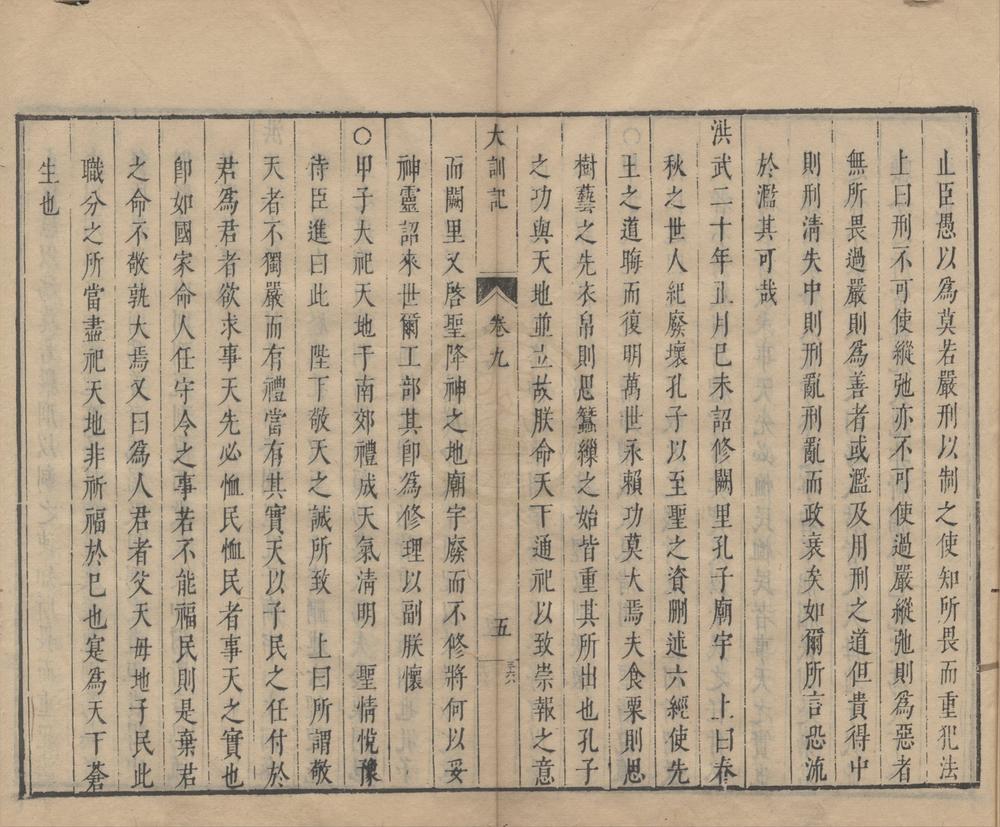 止臣愚以爲莫若嚴刑以制之使知所畏而重犯法
上曰刑不可使縱弛亦不可使過嚴縱弛則爲惡者
無所畏過嚴則爲善者或濫及用刑之道但貴得中
則刑清失中則刑亂刑亂而政衰矣如爾所言恐流
於濫其可哉
洪武二十年正月巳未詔修闕里孔子廟宇　上曰春
秋之世人紀廢壞孔子以至聖之資刪述六經使先
王之道晦而復明萬世永賴功莫大焉夫食粟則思
樹藝之先衣帛則思蠶繅之始皆重其所出也孔子
之功與天地並立故朕命天下通祀以致崇報之意
大訓記　卷九　五
而闕里又啓聖降神之地廟宇廢而不修將何以妥
神靈詔來世爾工部其卽爲修理以副朕懷
〇甲子大祀天地于南郊禮成天氣清明　聖情悅豫
侍臣進曰此　陛下敬天之誠所致　上曰所謂敬
天者不獨嚴而有禮當有其實天以子民之任付於
君爲君者欲求事天先必恤民恤民者事天之實也
卽如國家命人任守令之事若不能福民則是棄君
之命不敬孰大焉又曰爲人君者父天母地子民此
職分之所當盡祀天地非祈福於已也寔爲天下蒼
生也